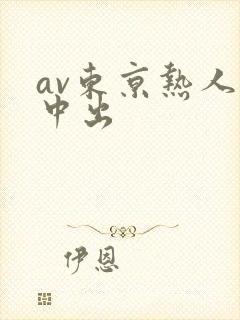 av东京热人
中出
伊恩